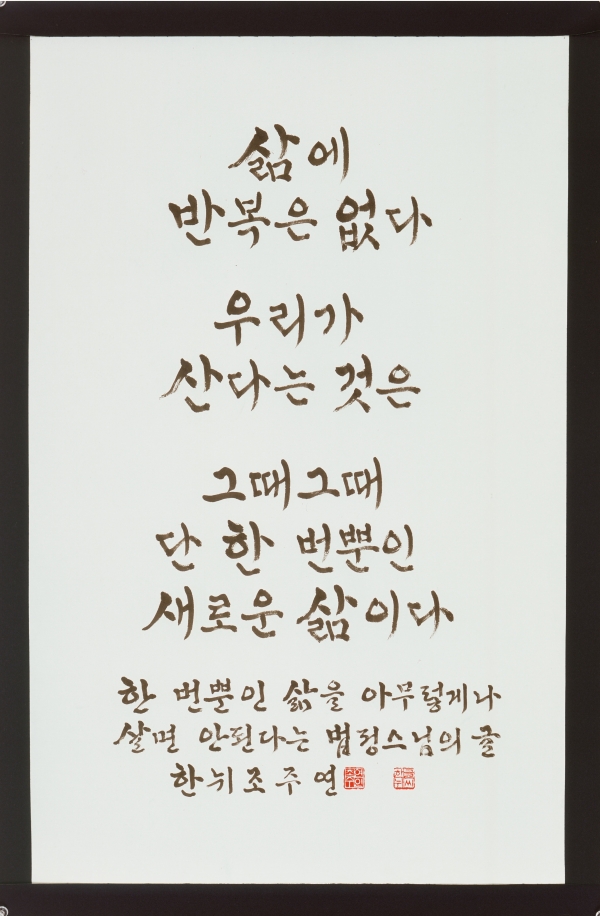 삶에
반복은 없다
우리가
산다는 것은
그때그때
단 한 번뿐인
새로운 삶이다
한 번뿐인 삶을 아무렇게나
살면 안된다는 법정스님의 글
한뉘 조주연